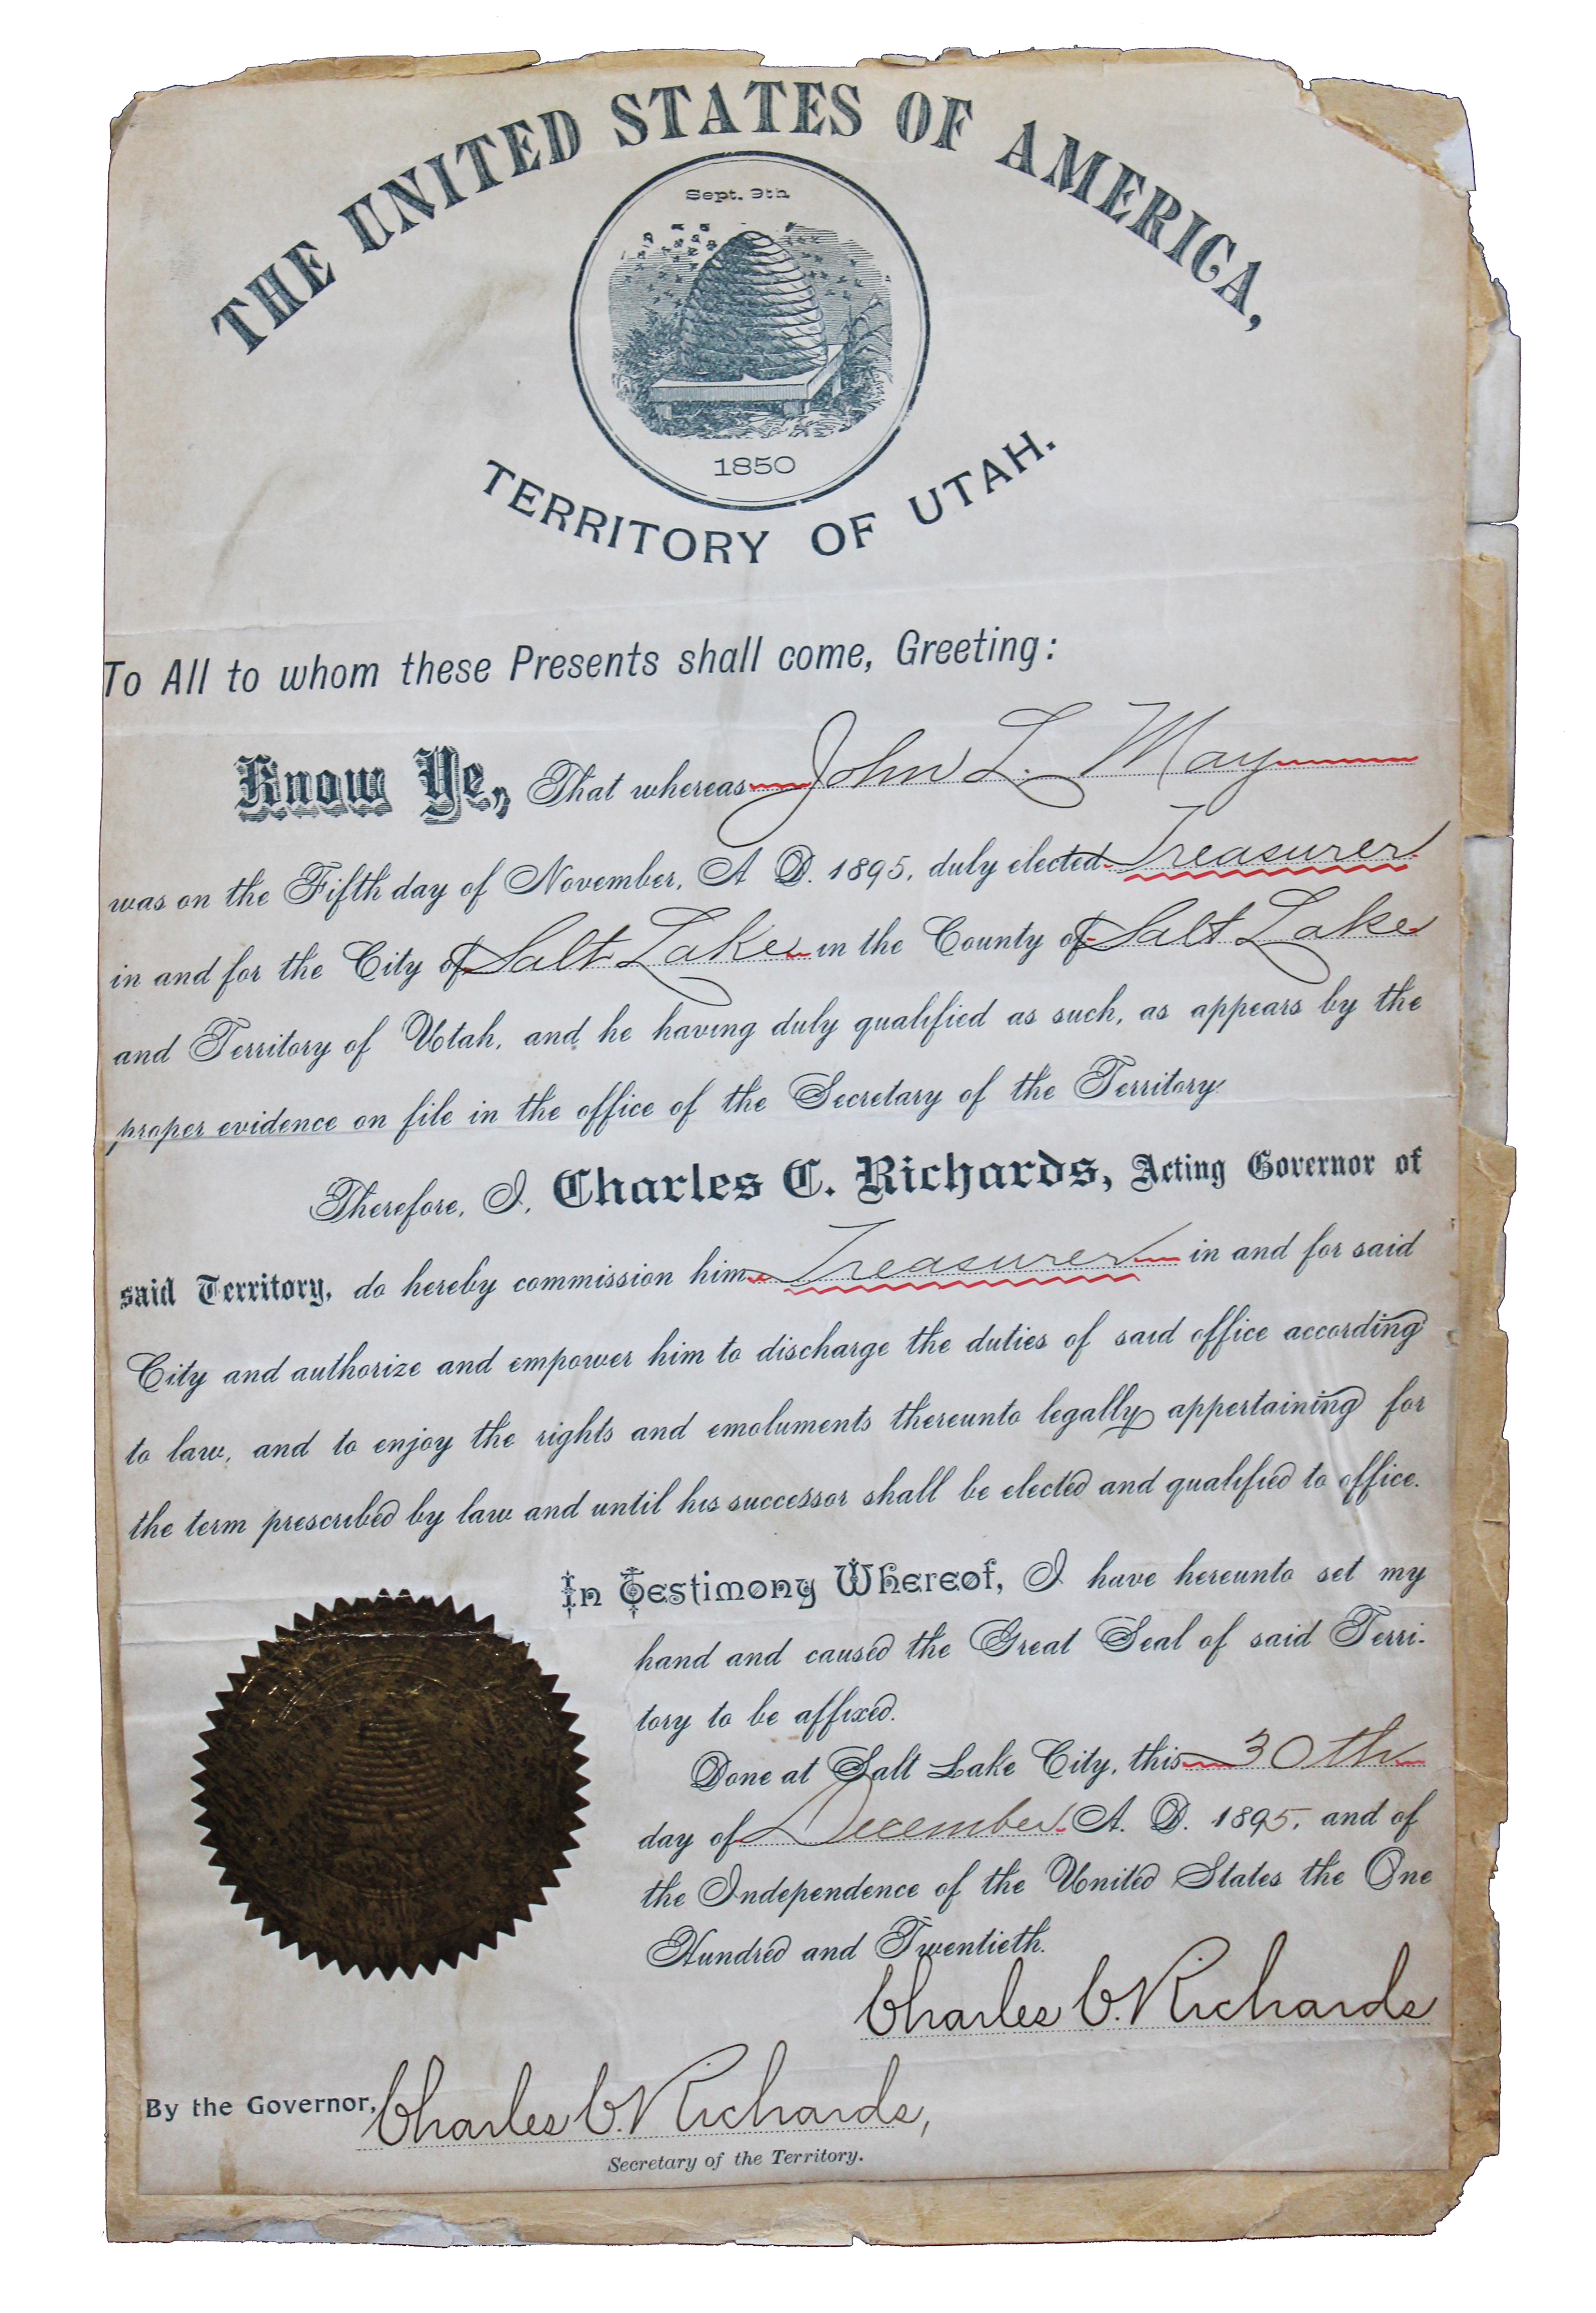 THE UNITED STATES OF AMERICA,
Sept. 9th
1850
TERRITORY OF UTAH.
To All to whom these Presents shall come, Greeting:
Know Ye, That whereas John L. May
was on the Fifth day of November, A D. 1895, duly elected Treasurer
in and for the City of Salt Lake in the County of Salt Lake
and Territory of Utah, and he having duly qualified as such, as appears by the
proper evidence on file in the office of the Secretary of the Territory.
Therefore, I, Charles C. Richards, Acting Governor of
said Territory, do hereby commission him Treasurer in and for said
City and authorize and empower him to discharge the duties of said office according
to law, and to enjoy the rights and emoluments thereunto legally appertaining for
the term prescribed by law and until his successor shall be elected and qualified to office.
In Testimony Whereof, I have hereunto set my
hand and caused the Great Seal of said Terri-
tory to be affixed.
Done at Salt Lake City, this 30th
day of December A. D. 1895, and of
the Independence of the United States the One
Hundred and Twentieth.
Charles C. Richards
By the Governor, Charles C. Richards,
Secretary of the Territory.